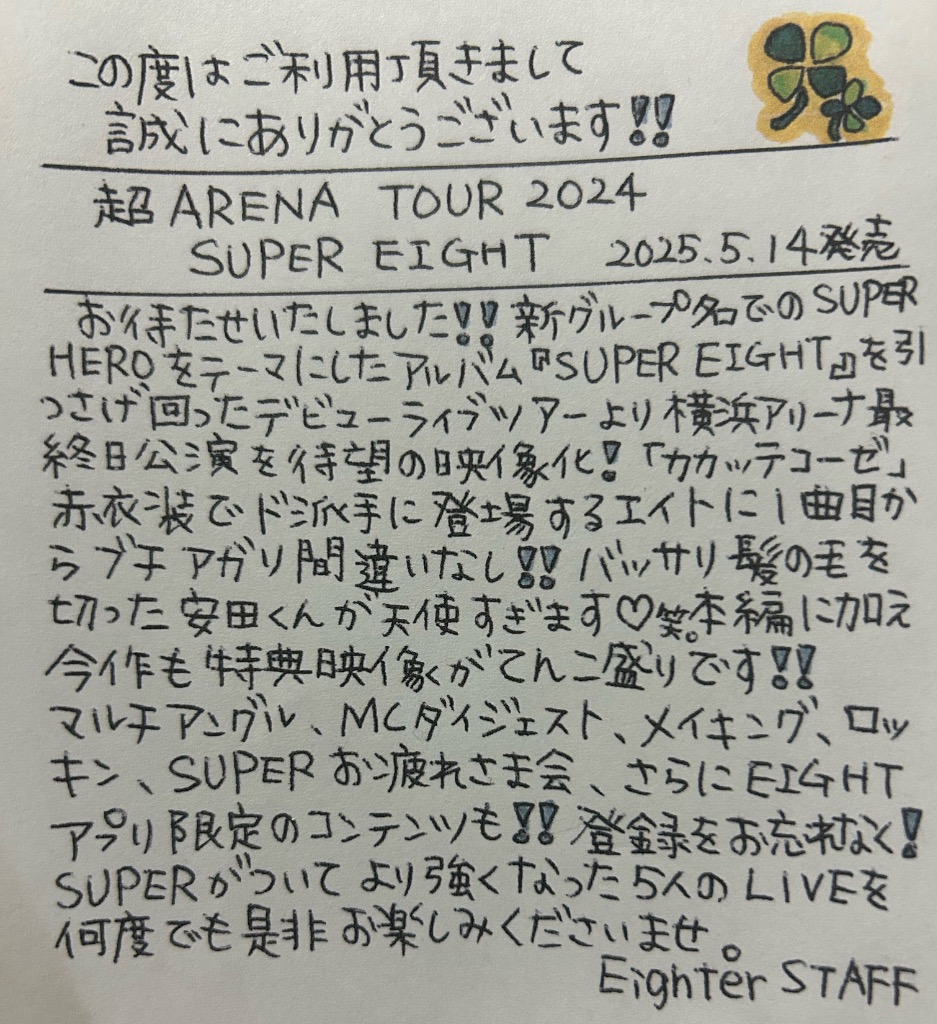 この度はご利用頂きまして
誠にありがとうございます!!
超 ARENA TOUR 2024
SUPER EIGHT 2025.5.14発売
お待たせいたしました!! 新グループ名でのSUPER
HEROをテーマにしたアルバム『SUPER EIGHT』を引
っさげ回ったデビューライブツアーより横浜アリーナ最
終日公演を待望の映像化!「カカッテコーゼ」
赤衣装でド派手に登場するエイトに1曲目か
らブチアガリ間違いなし!! バッサリ髪の毛を
切った安田くんが天使すぎます♡笑。本編に加え
今作も特典映像がてんこ盛りです!!
マルチアングル、MCダイジェスト、メイキング、ロッ
キン、SUPERお疲れさま会、さらにEIGHT
アプリ限定のコンテンツも!! 登録をお忘れなく!
SUPERがついてより強くなった5人のLIVEを
何度でも是非お楽しみくださいませ。
Eighter STAFF